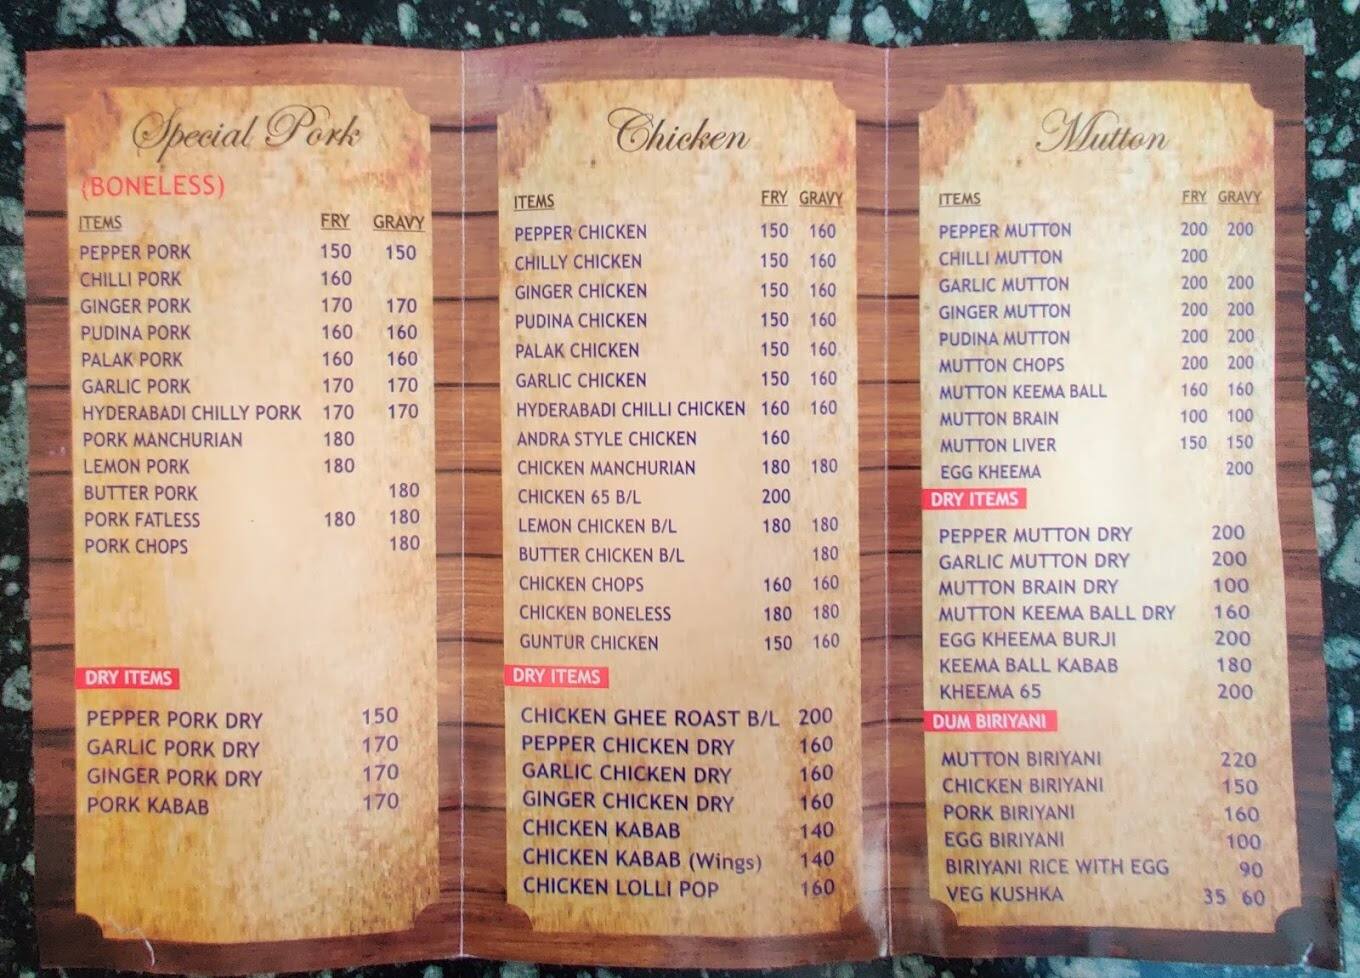 Special Pork
(BONELESS)
ITEMS FRY GRAVY
PEPPER PORK 150 150
CHILLI PORK 160
GINGER PORK 170 170
PUDINA PORK 160 160
PALAK PORK 160 160
GARLIC PORK 170 170
HYDERABADI CHILLY PORK 170 170
PORK MANCHURIAN 180
LEMON PORK 180
BUTTER PORK 180
PORK FATLESS 180 180
PORK CHOPS 180
DRY ITEMS
PEPPER PORK DRY 150
GARLIC PORK DRY 170
GINGER PORK DRY 170
PORK KABAB 170
Chicken
ITEMS FRY GRAVY
PEPPER CHICKEN 150 160
CHILLY CHICKEN 150 160
GINGER CHICKEN 150 160
PUDINA CHICKEN 150 160
PALAK CHICKEN 150 160
GARLIC CHICKEN 150 160
HYDERABADI CHILLI CHICKEN 160 160
ANDRA STYLE CHICKEN 160
CHICKEN MANCHURIAN 180 180
CHICKEN 65 B/L 200
LEMON CHICKEN B/L 180 180
BUTTER CHICKEN B/L 180
CHICKEN CHOPS 160 160
CHICKEN BONELESS 180 180
GUNTUR CHICKEN 150 160
DRY ITEMS
CHICKEN GHEE ROAST B/L 200
PEPPER CHICKEN DRY 160
GARLIC CHICKEN DRY 160
GINGER CHICKEN DRY 160
CHICKEN KABAB 140
CHICKEN KABAB (Wings) 140
CHICKEN LOLLI POP 160
Mutton
ITEMS FRY GRAVY
PEPPER MUTTON 200 200
CHILLI MUTTON 200
GARLIC MUTTON 200 200
GINGER MUTTON 200 200
PUDINA MUTTON 200 200
MUTTON CHOPS 200 200
MUTTON KEEMA BALL 160 160
MUTTON BRAIN 100 100
MUTTON LIVER 150 150
EGG KHEEMA 200
DRY ITEMS
PEPPER MUTTON DRY 200
GARLIC MUTTON DRY 200
MUTTON BRAIN DRY 100
MUTTON KEEMA BALL DRY 160
EGG KHEEMA BURJI 200
KEEMA BALL KABAB 180
KHEEMA 65 200
DUM BIRIYANI
MUTTON BIRIYANI 220
CHICKEN BIRIYANI 150
PORK BIRIYANI 160
EGG BIRIYANI 100
BIRIYANI RICE WITH EGG 90
VEG KUSHKA 35 60